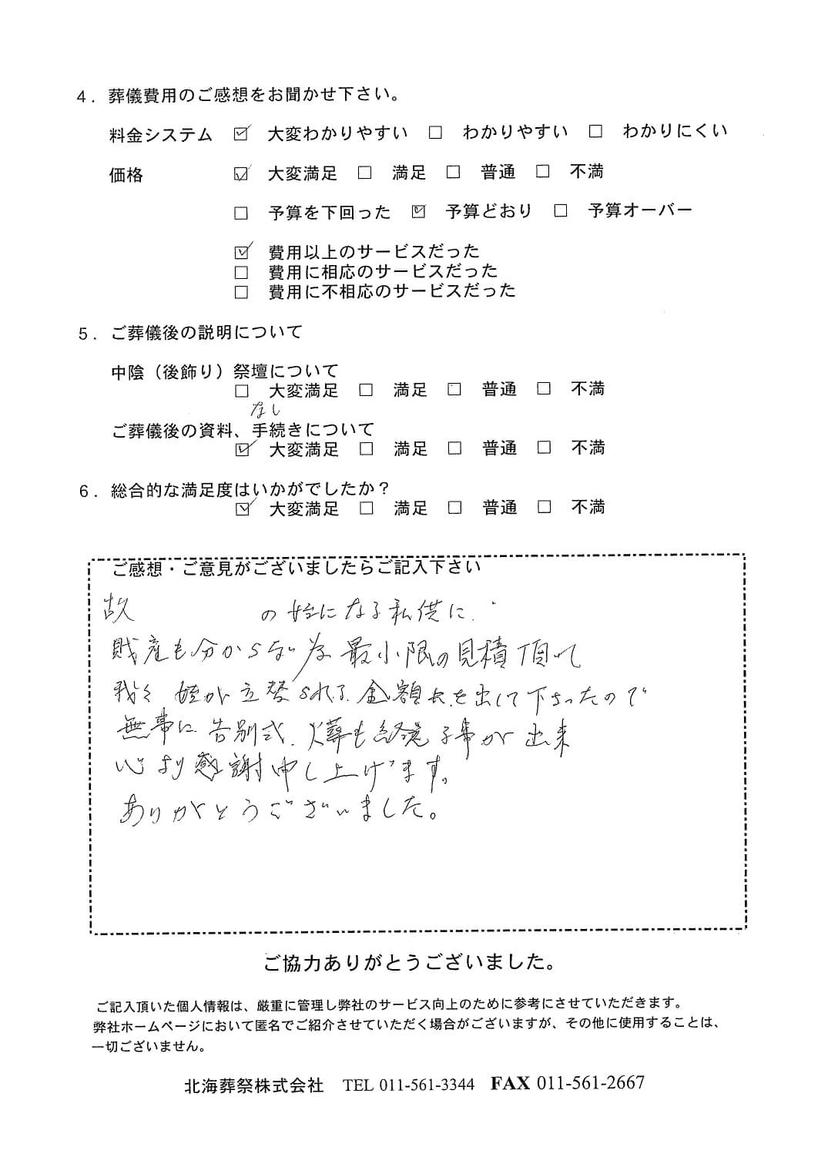 4．葬儀費用のご感想をお聞かせ下さい。
料金システム ☑ 大変わかりやすい □ わかりやすい □ わかりにくい
価格 ☑ 大変満足 □ 満足 □ 普通 □ 不満
□ 予算を下回った ☑ 予算どおり □ 予算オーバー
☑ 費用以上のサービスだった
□ 費用に相応のサービスだった
□ 費用に不相応のサービスだった
5．ご葬儀後の説明について
中陰（後飾り）祭壇について
□ 大変満足 □ 満足 □ 普通 □ 不満
なし
ご葬儀後の資料、手続きについて
☑ 大変満足 □ 満足 □ 普通 □ 不満
6．総合的な満足度はいかがでしたか？
☑ 大変満足 □ 満足 □ 普通 □ 不満
ご感想・ご意見がございましたらご記入下さい
故 の姪になる私供に、
財産も分からない為最小限の見積頂いて
我々姪が立替られる金額を出して下さったので
無事に告別式、火葬も 事が出来
心より感謝申し上げます。
ありがとうございました。
ご協力ありがとうございました。
ご記入頂いた個人情報は、厳重に管理し弊社のサービス向上のために参考にさせていただきます。
弊社ホームページにおいて匿名でご紹介させていただく場合がございますが、その他に使用することは、
一切ございません。
北海葬祭株式会社 TEL 011-561-3344 FAX 011-561-2667